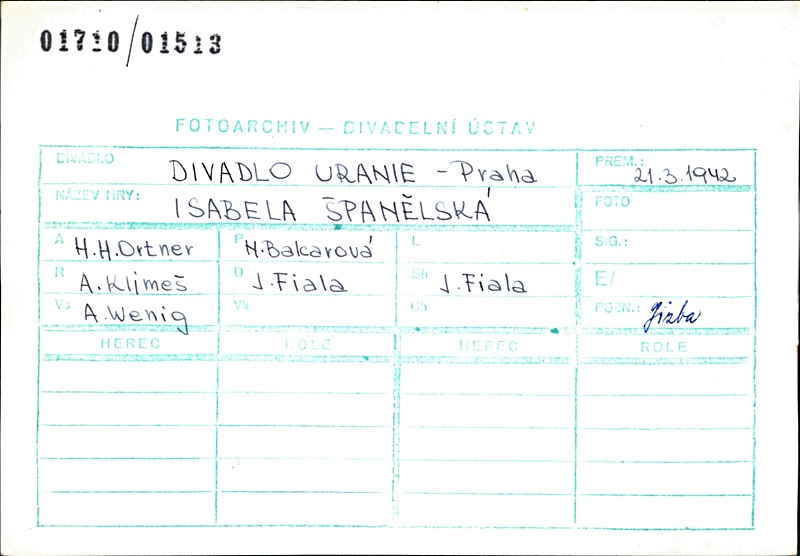 01710/01513
FOTOARCHIV — DIVADELNÍ ÚSTAV
DIVADLO DIVADLO URANIE - Praha PREM.: 21.3.1942
NÁZEV HRY: ISABELA ŠPANĚLSKÁ FOTO
A H.H.Ortner P M.Balcarová L SIG.:
R A.Klimeš D J.Fiala Sh J.Fiala E/
Vs A.Wenig Vk Ch POZN.:
HEREC ROLE HEREC ROLE